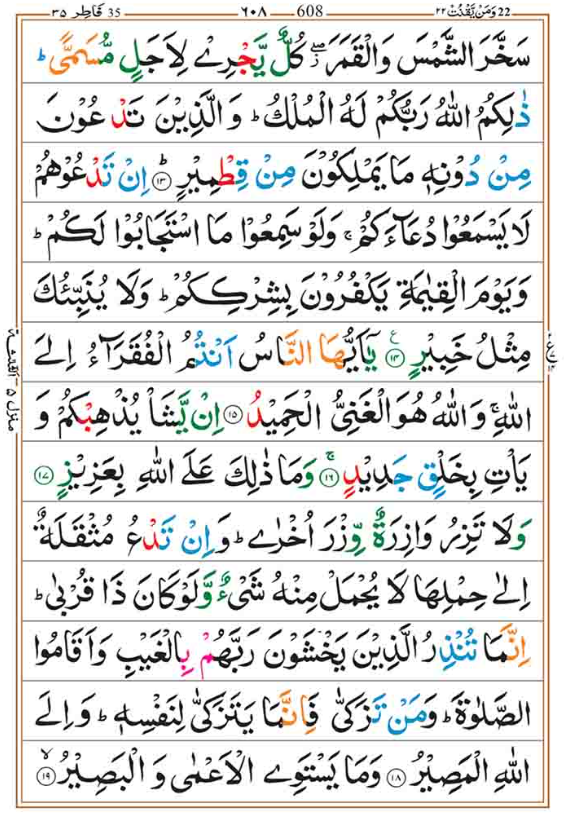 22 وَمَنۡ يَّقۡنُتۡ ٢٢ 608 ٦٠٨ 35 فَاطِر ٣٥
سَخَّرَ الشَّمۡسَ وَالۡقَمَرَ ۖ كُلٌّ يَّجۡرِىۡ لِاَجَلٍ مُّسَمًّى ؕ
ذٰ لِكُمُ اللّٰهُ رَبُّكُمۡ لَهُ الۡمُلۡكُ ؕ وَالَّذِيۡنَ تَدۡعُوۡنَ
مِنۡ دُوۡنِهٖ مَا يَمۡلِكُوۡنَ مِنۡ قِطۡمِيۡرٍ ؕ‏ ﴿۱۳﴾ اِنۡ تَدۡعُوۡهُمۡ
لَا يَسۡمَعُوۡا دُعَآءَكُمۡ ۚ وَلَوۡ سَمِعُوۡا مَا اسۡتَجَابُوۡا لَـكُمۡ ؕ
وَيَوۡمَ الۡقِيٰمَةِ يَكۡفُرُوۡنَ بِشِرۡكِكُمۡ ؕ وَلَا يُنَـبِّـئُكَ
مِثۡلُ خَبِيۡرٍ ﴿۱۴﴾ يٰۤاَيُّهَا النَّاسُ اَنۡتُمُ الۡفُقَرَآءُ اِلَى
اللّٰهِ ۚ وَاللّٰهُ هُوَ الۡغَنِىُّ الۡحَمِيۡدُ ﴿۱۵﴾ اِنۡ يَّشَاۡ يُذۡهِبۡكُمۡ وَ
يَاۡتِ بِخَلۡقٍ جَدِيۡدٍ ۚ ﴿۱۶﴾ وَمَا ذٰ لِكَ عَلَى اللّٰهِ بِعَزِيۡزٍ ﴿۱۷﴾
وَلَا تَزِرُ وَازِرَةٌ وِّزۡرَ اُخۡرٰى ؕ وَاِنۡ تَدۡعُ مُثۡقَلَةٌ
اِلٰى حِمۡلِهَا لَا يُحۡمَلۡ مِنۡهُ شَىۡءٌ وَّلَوۡ كَانَ ذَا قُرۡبٰى ؕ
اِنَّمَا تُنۡذِرُ الَّذِيۡنَ يَخۡشَوۡنَ رَبَّهُمۡ بِالۡغَيۡبِ وَاَقَامُوا
الصَّلٰوةَ ؕ وَمَنۡ تَزَكّٰى فَاِنَّمَا يَتَزَكّٰى لِنَفۡسِهٖ ؕ وَاِلَى
اللّٰهِ الۡمَصِيۡرُ ﴿۱۸﴾ وَمَا يَسۡتَوِى الۡاَعۡمٰى وَ الۡبَصِيۡرُ ۙ ﴿۱۹﴾
منزل ۵